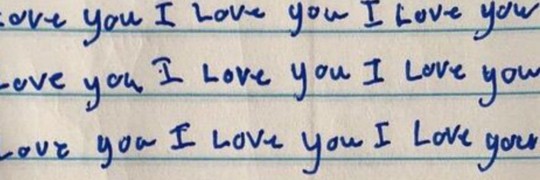 Love you I Love you I Love you
Love you I Love you I Love you
Love you I Love you I Love your